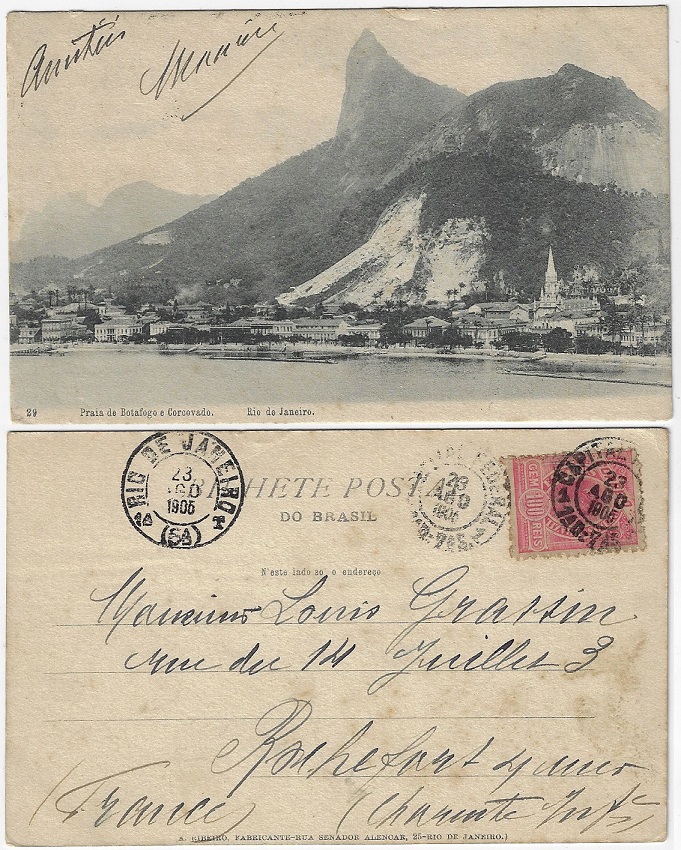 Amitiés
29 Praia de Botafogo e Corcovado. Rio do Janeiro.
RIO DE JANEIRO
23
AGO
1905
(5A)
23
AGO
1905
CAPITAL
23
AGO
1905
CEM 100 REIS
BILHETE POSTAL
DO BRASIL
N'este lado só o endereço
Monsieur Louis Grassin
rue du 14 Juillet 3
Rochefort s/mer
(France) (Charente Infre)
A. RIBEIRO, FABRICANTE-RUA SENADOR ALENCAR, 25-RIO DE JANEIRO.)